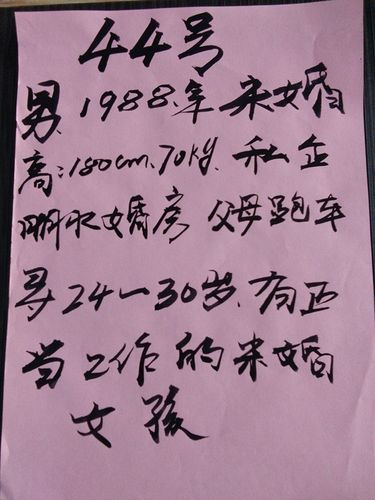 44号
男.1988.年 未婚
高:180cm.70kg. 私企
水婚房 父母跑车
寻24一30岁.有正
当工作的未婚
女孩